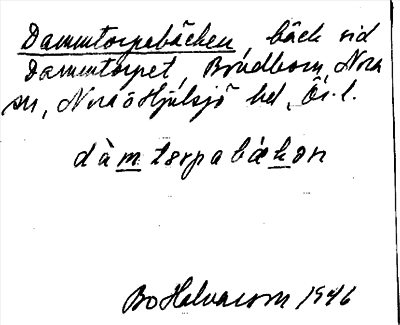 Dammtorpabäcken, bäck vid
Dammtorpet, Bondborn, Nora
sn, Nora o Hjulsjö hd, Ör. l.
dàmtorpabäkən
Bo Halvarson 1946